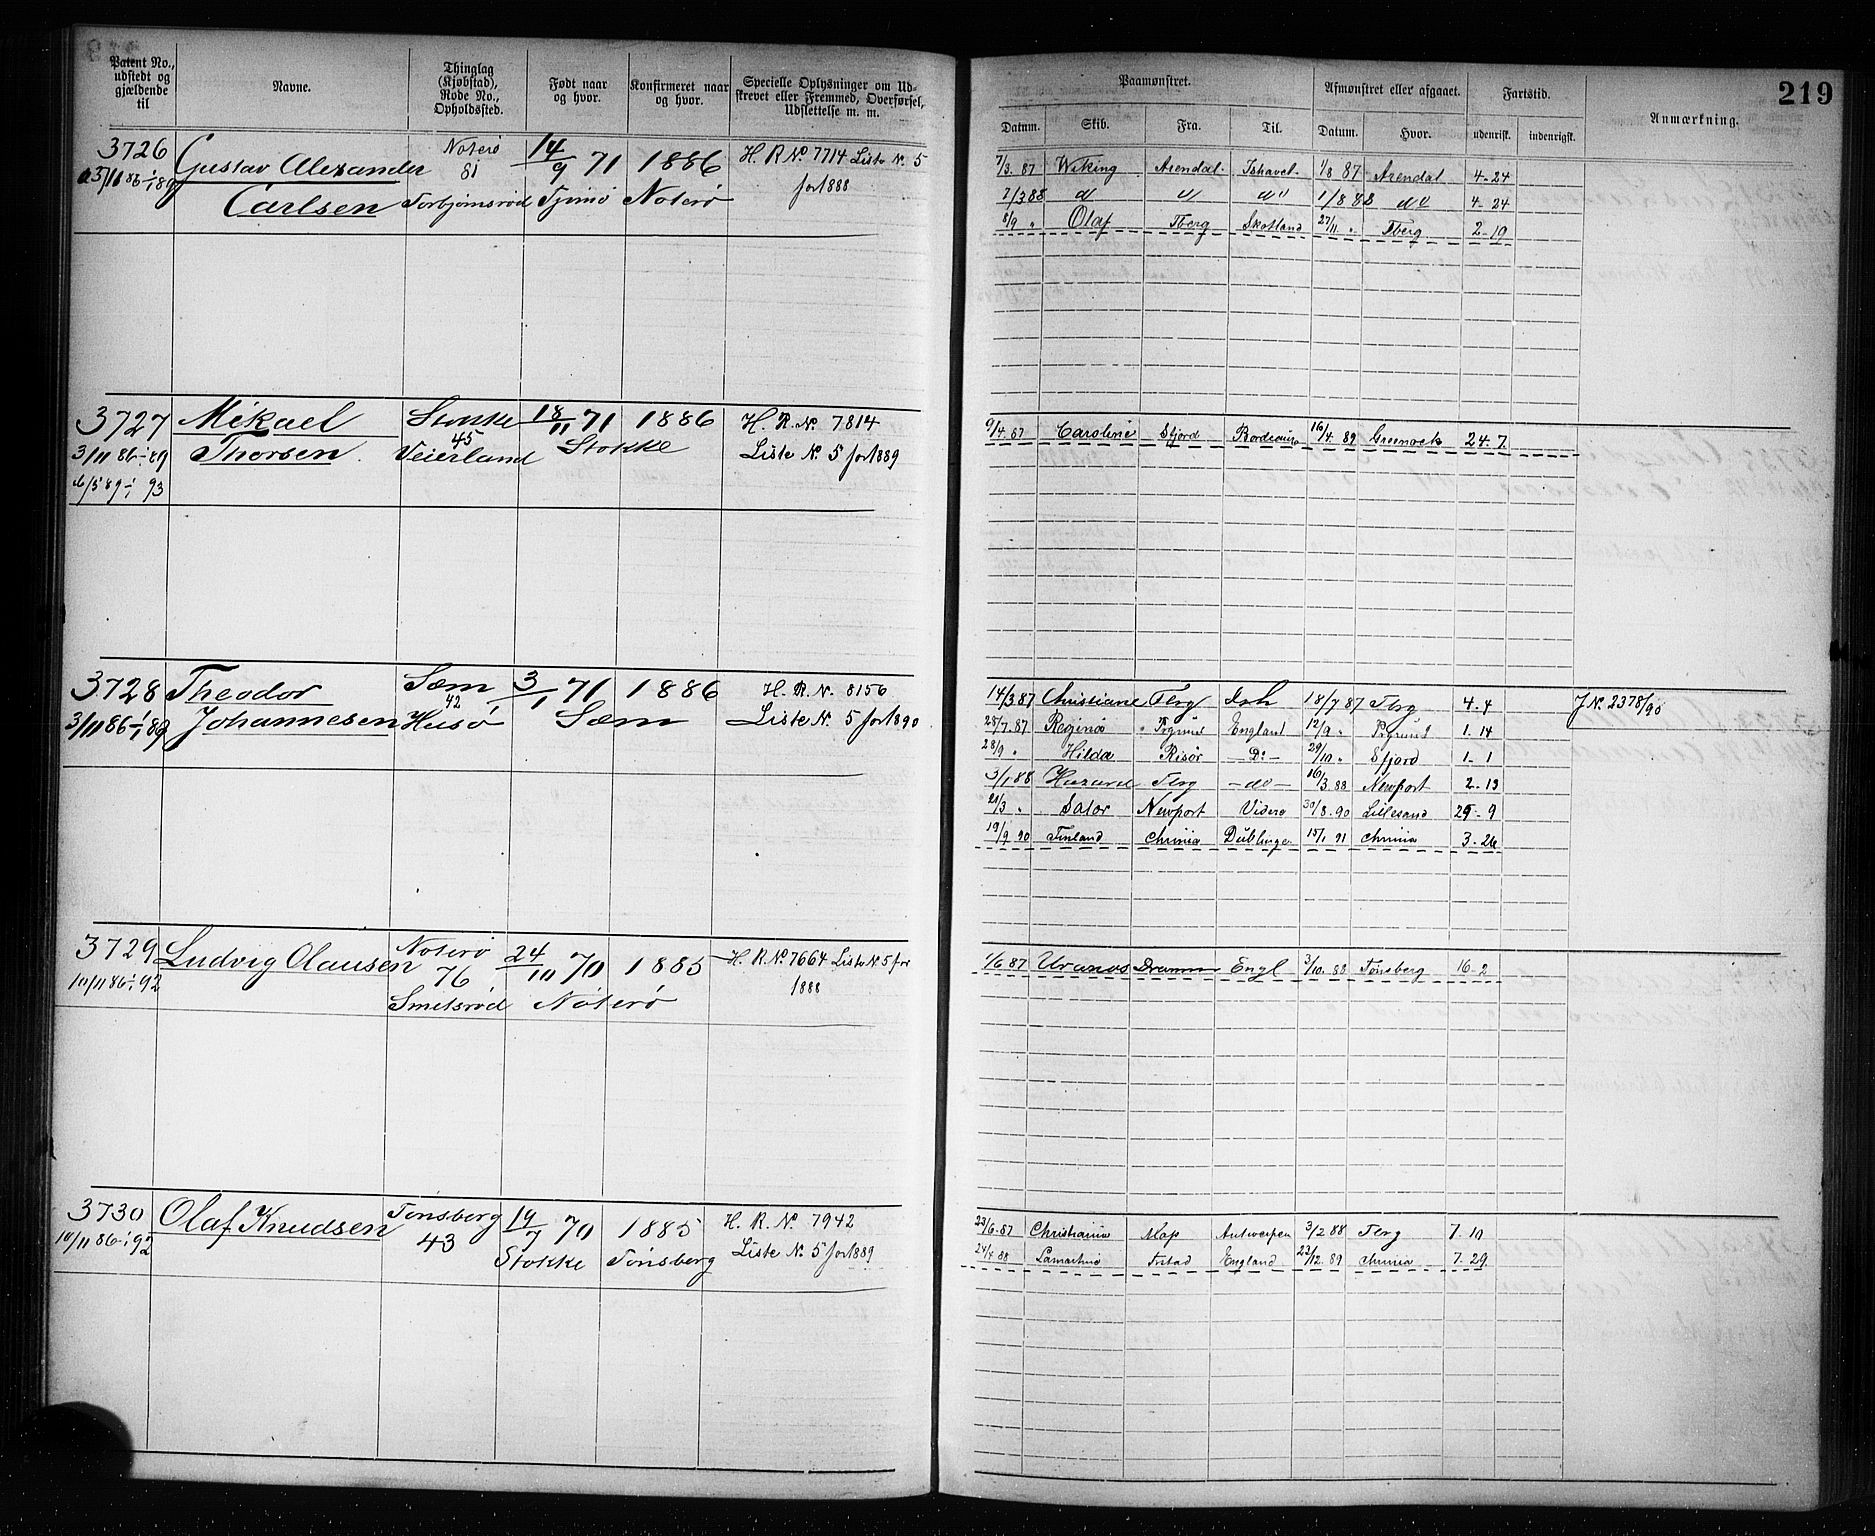 219
Patent No., udstedt og gjældende til
Navne.
Thinglag (Kjøbstad), Rode No., Opholdssted.
Født naar og hvor.
Konfirmeret naar og hvor.
Specielle Oplysninger om Udskrevet eller Fremmed, Overførsel, Udslettelse m. m.
Paamønstret.
Afmønstret eller afgaaet.
Fartstid.
Anmærkning.
Datum. Skib. Fra. Til. Datum. Hvor. udenrigst. indenrigst.
3726 Gustav Alexander Nøterø 14/9 71 1886 H. R No. 7714 Liste N. 5
3/11 86 - 1/1 89 81 for 1888
Carlsen Torbjørnsrød Tjømø Nøterø
7/3. 87 Wiking Arendal. Ishavet. 1/8 87 Arendal 4-24
7/3 88 1/8 88 4-24
8/9 " Olaf Tberg Skotland 27/11 " Tberg. 2-19
3727 Mikael Stokke 18/11 71 1886 H. R. N. 7814
3/11 86 - 1/1 89 Thorsen 45 Veierland Stokke Liste N. 5 for 1889
6/5 89 - 1/1 93
9/4. 87 Caroline Sfjord Bordeaux 16/4. 89 Greenock 24. 7.
3728 Theodor Sæm 3/1 71 1886 H. R. N. 8156
3/11 86 - 1/1 89 Johannesen 42 Husø Sæm Liste N. 5 for 1890
14/3 87 Christiane Tbrg 18/7 87 Tbrg 4. 4 J N. 2378/90
28/7. 87 Regina England 12/9 " 1. 14
28/9 " Hilda Risør - Do - 29/10 " Sfjord 1- 1
3/1 88 Tbrg - do - 16/3. 88 Newport 2. 13
21/3 " Salor Newport 30/8. 90 Lillesand 29- 9
19/9 90 Finland Chrinia 15/1 91 Chrinia 3. 26
3729 Ludvig Olausen Nøterø 24/10 70 1885 H. R. No 7664 Liste N. 5 for
10/11 86 - 1/1 92 76 1888
Smidsrød Nøterø
1/6. 87 Uranos Dramm Engl 3/10. 88 Tønsberg 16- 2
3730 Olaf Knudsen Tønsberg 19/7 70 1885 H. R. No 7942
10/11 86 - 1/1 92 43 Stokke Tønsberg Liste N. 5 for 1889
23/6. 87 Christiania Antwerpen 3/2 88 Tbrg 7. 10
24/4 88 England 22/12. 89 Chrinia 7. 29